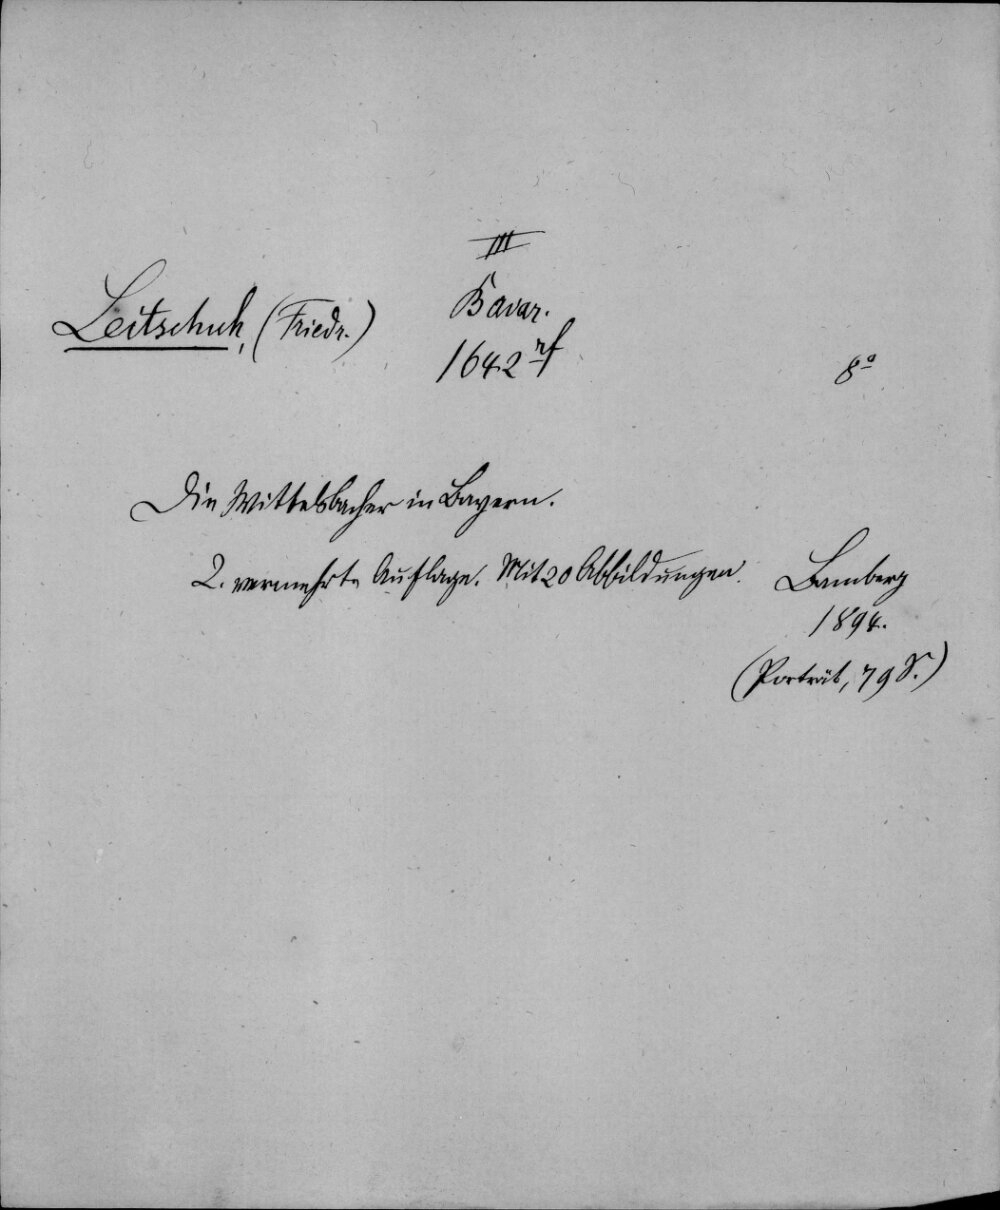 III
Bavar.
Leitschuh, (Friedr.)
1642 rf
8º
Die Wittelsbacher in Bayern.
2. vermehrte Auflage. Mit 20 Abbildungen.
Bamberg
1894.
(Porträt, 79 S.)